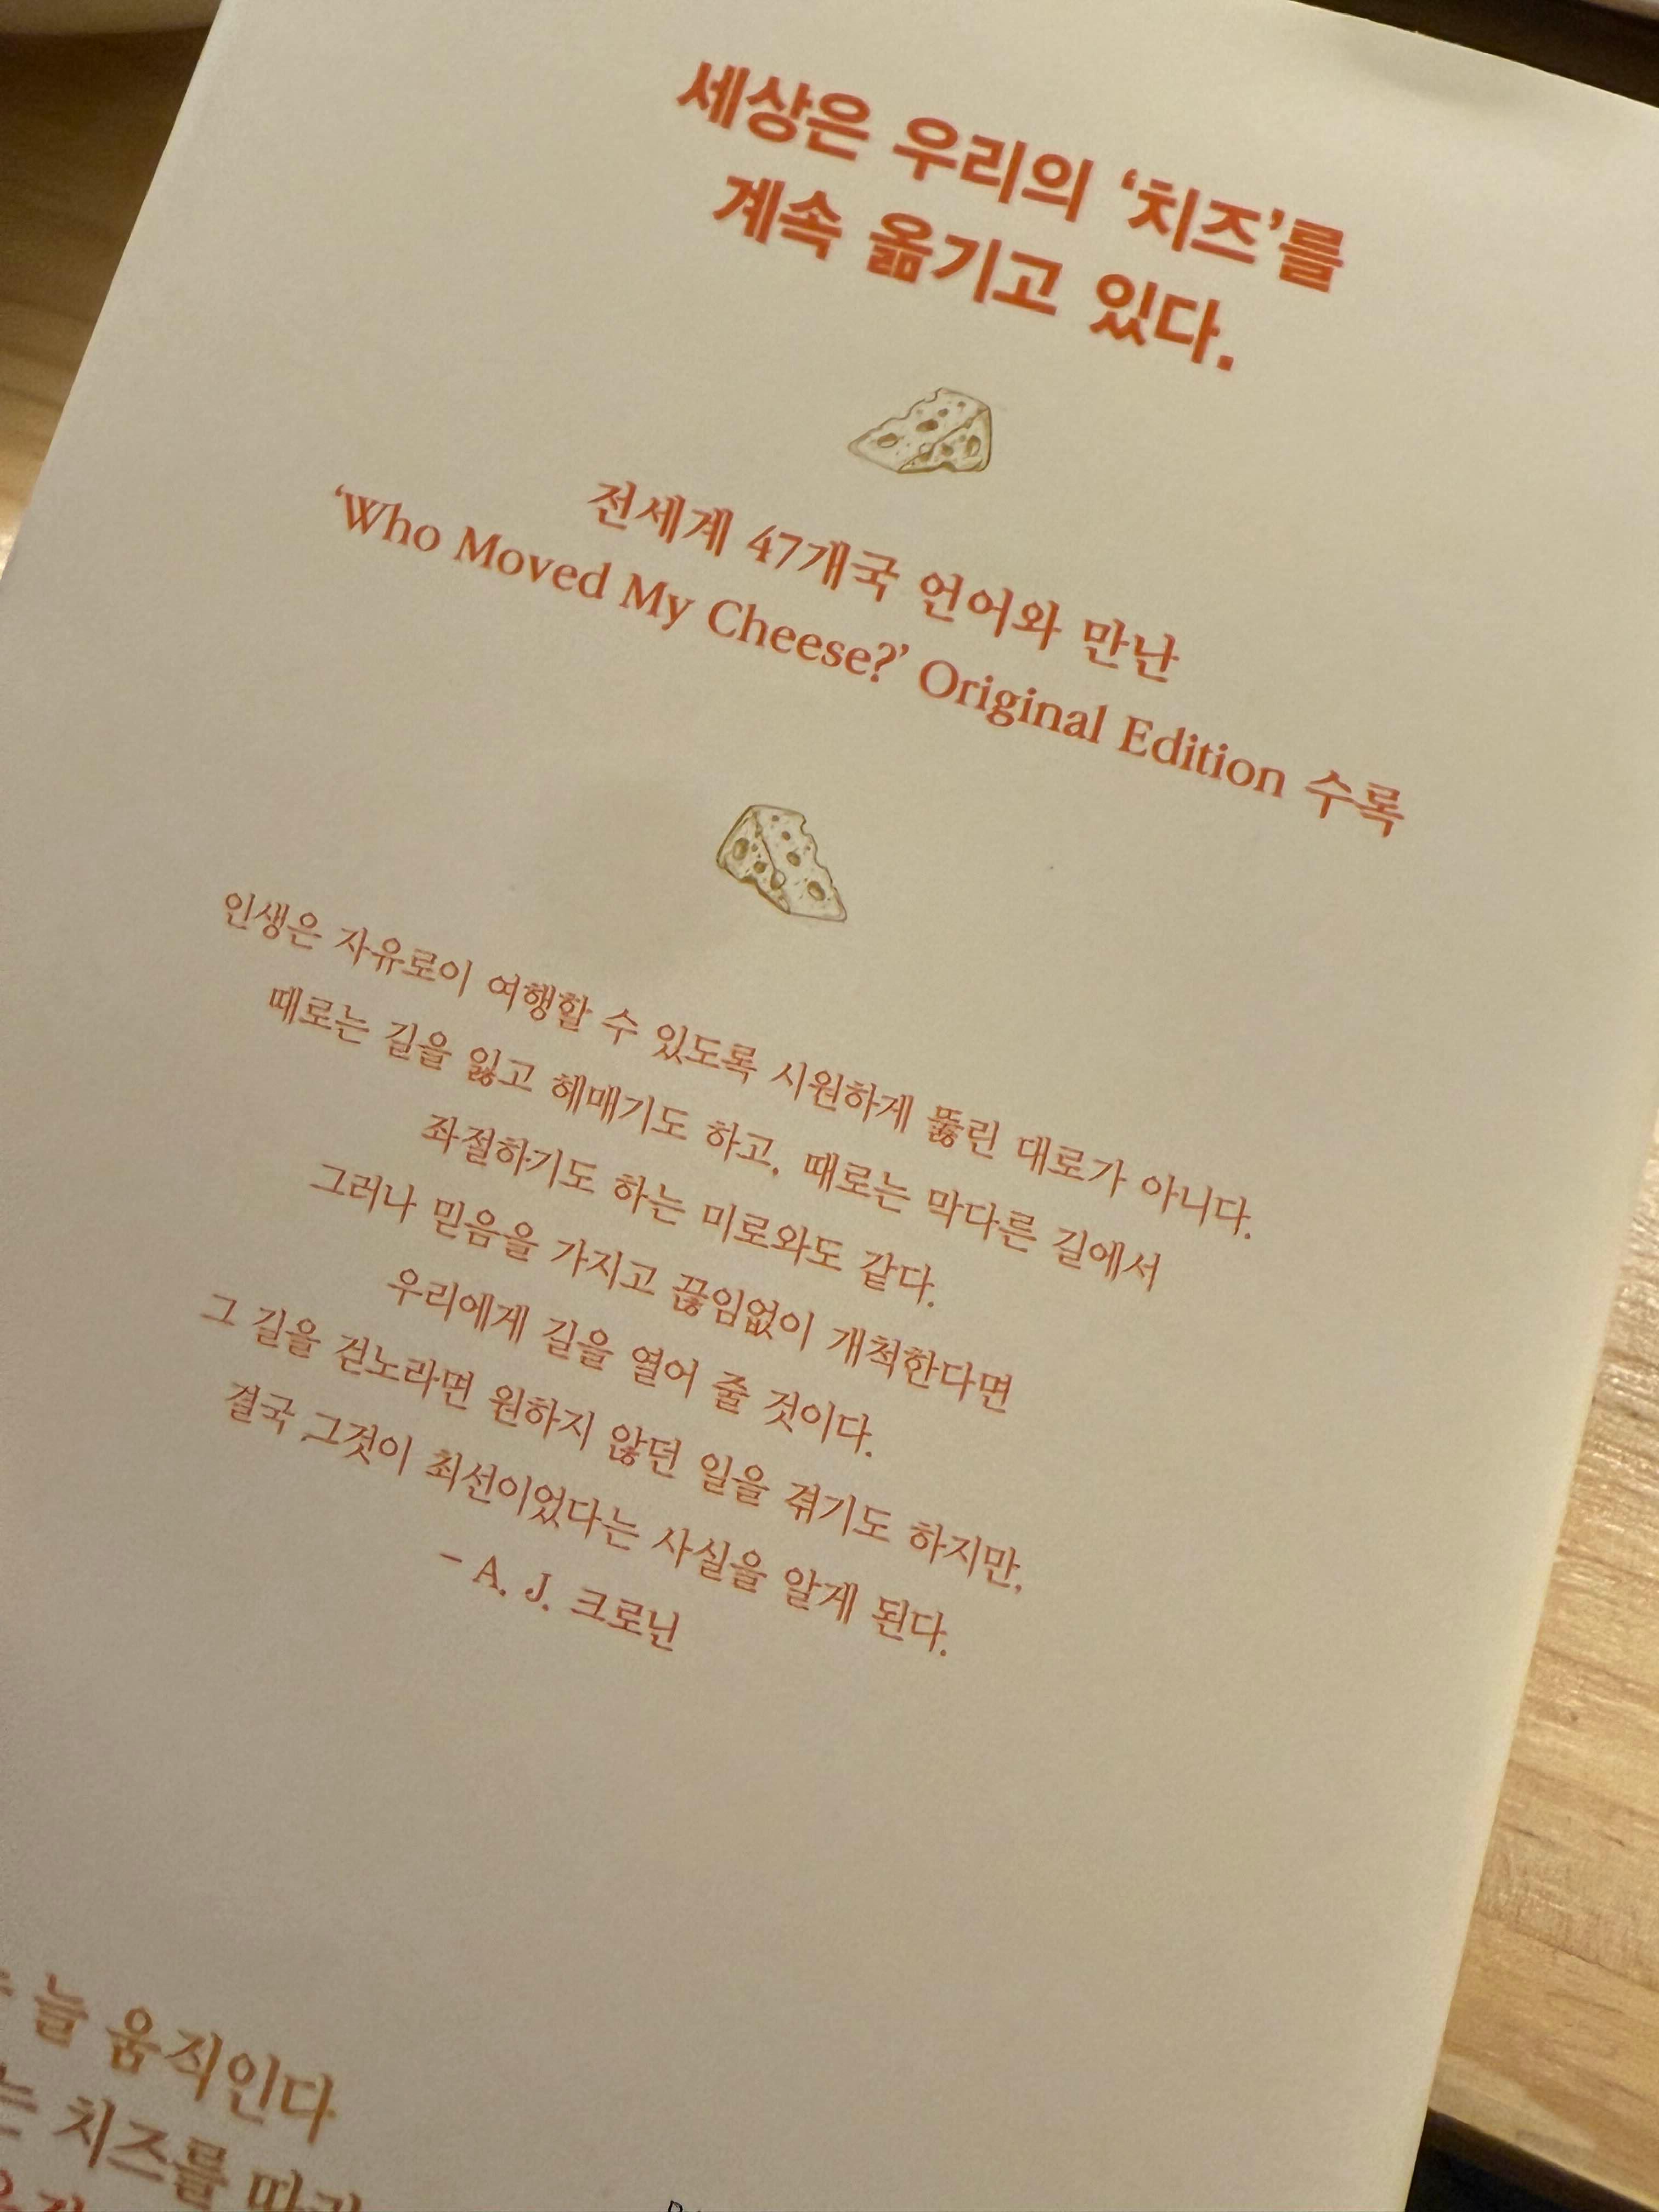 세상은 우리의 ‘치즈’를
계속 옮기고 있다.
전세계 47개국 언어와 만난
‘Who Moved My Cheese?’ Original Edition 수록
인생은 자유로이 여행할 수 있도록 시원하게 뚫린 대로가 아니다.
때로는 길을 잃고 헤매기도 하고, 때로는 막다른 길에서
좌절하기도 하는 미로와도 같다.
그러나 믿음을 가지고 끊임없이 개척한다면
우리에게 길을 열어 줄 것이다.
그 길을 걷노라면 원하지 않던 일을 겪기도 하지만,
결국 그것이 최선이었다는 사실을 알게 된다.
– A. J. 크로닌
늘 움직인다
는 치즈를 따라